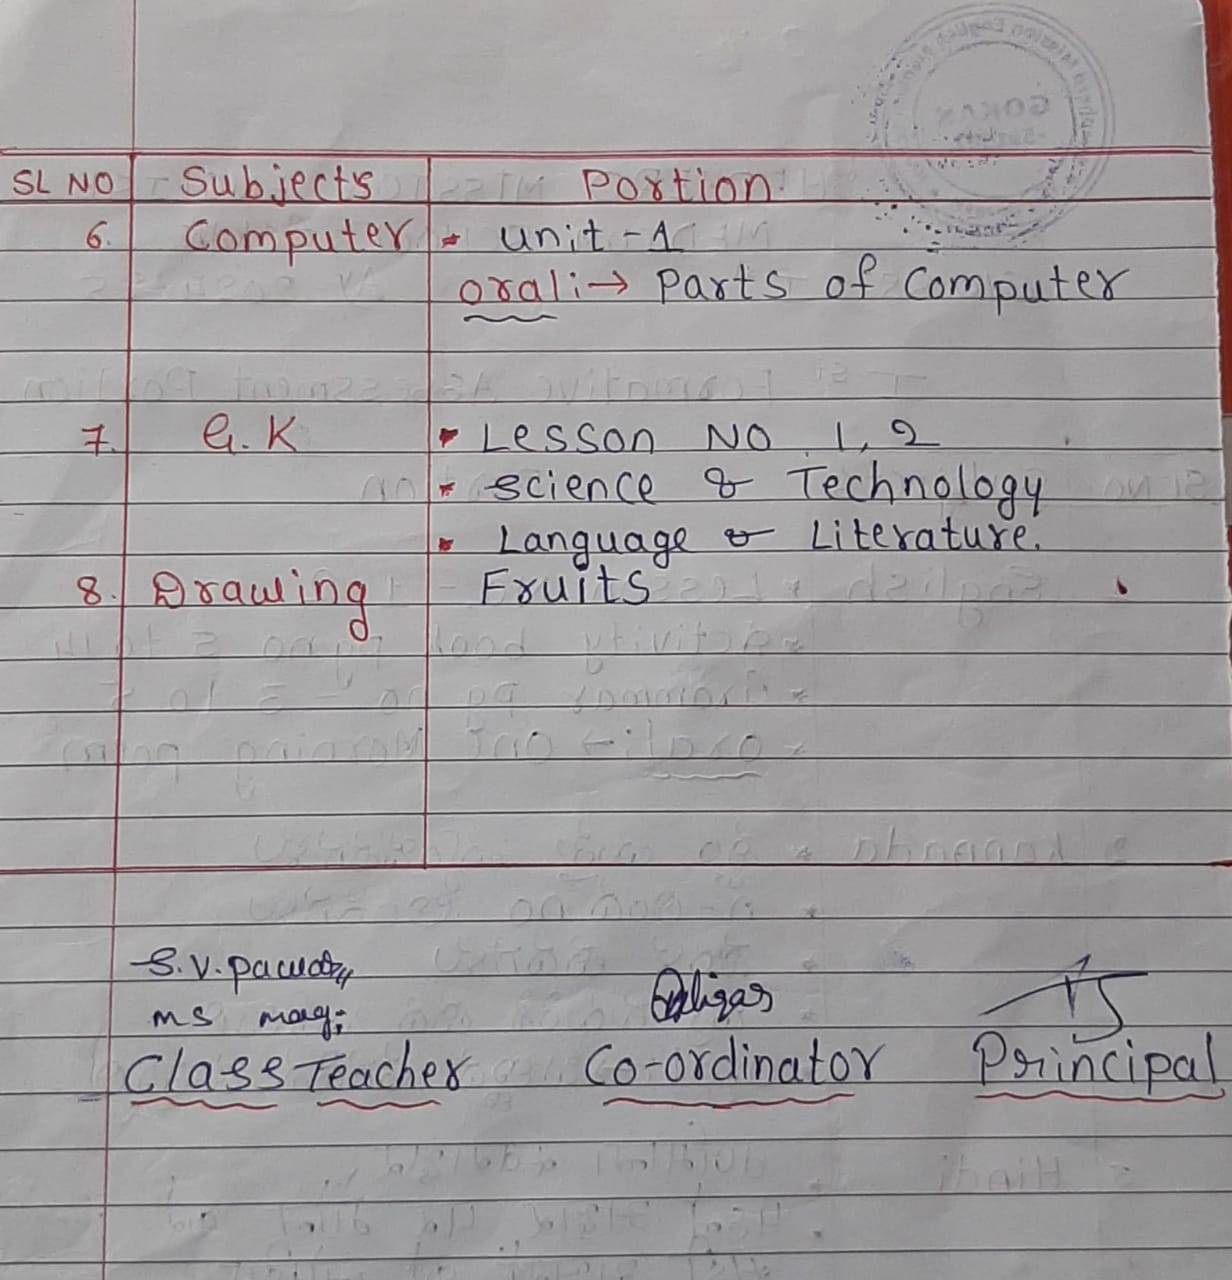 SL NO Subjects Portion
6. Computer • unit - 1
oral:→ Parts of Computer
7. G.K • Lesson NO 1, 2
• Science & Technology
• Language & Literature.
8. Drawing Fruits
S.V.
ms
Class Teacher Co-ordinator Principal
GOKAK